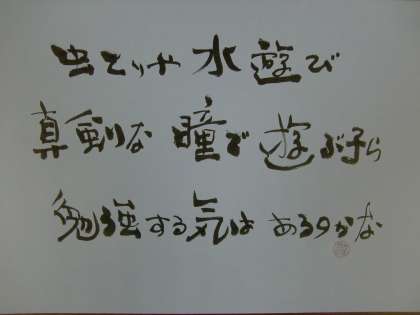 虫とりや 水遊び
真剣な 瞳で 遊ぶ子ら
勉強する気は あるのかな